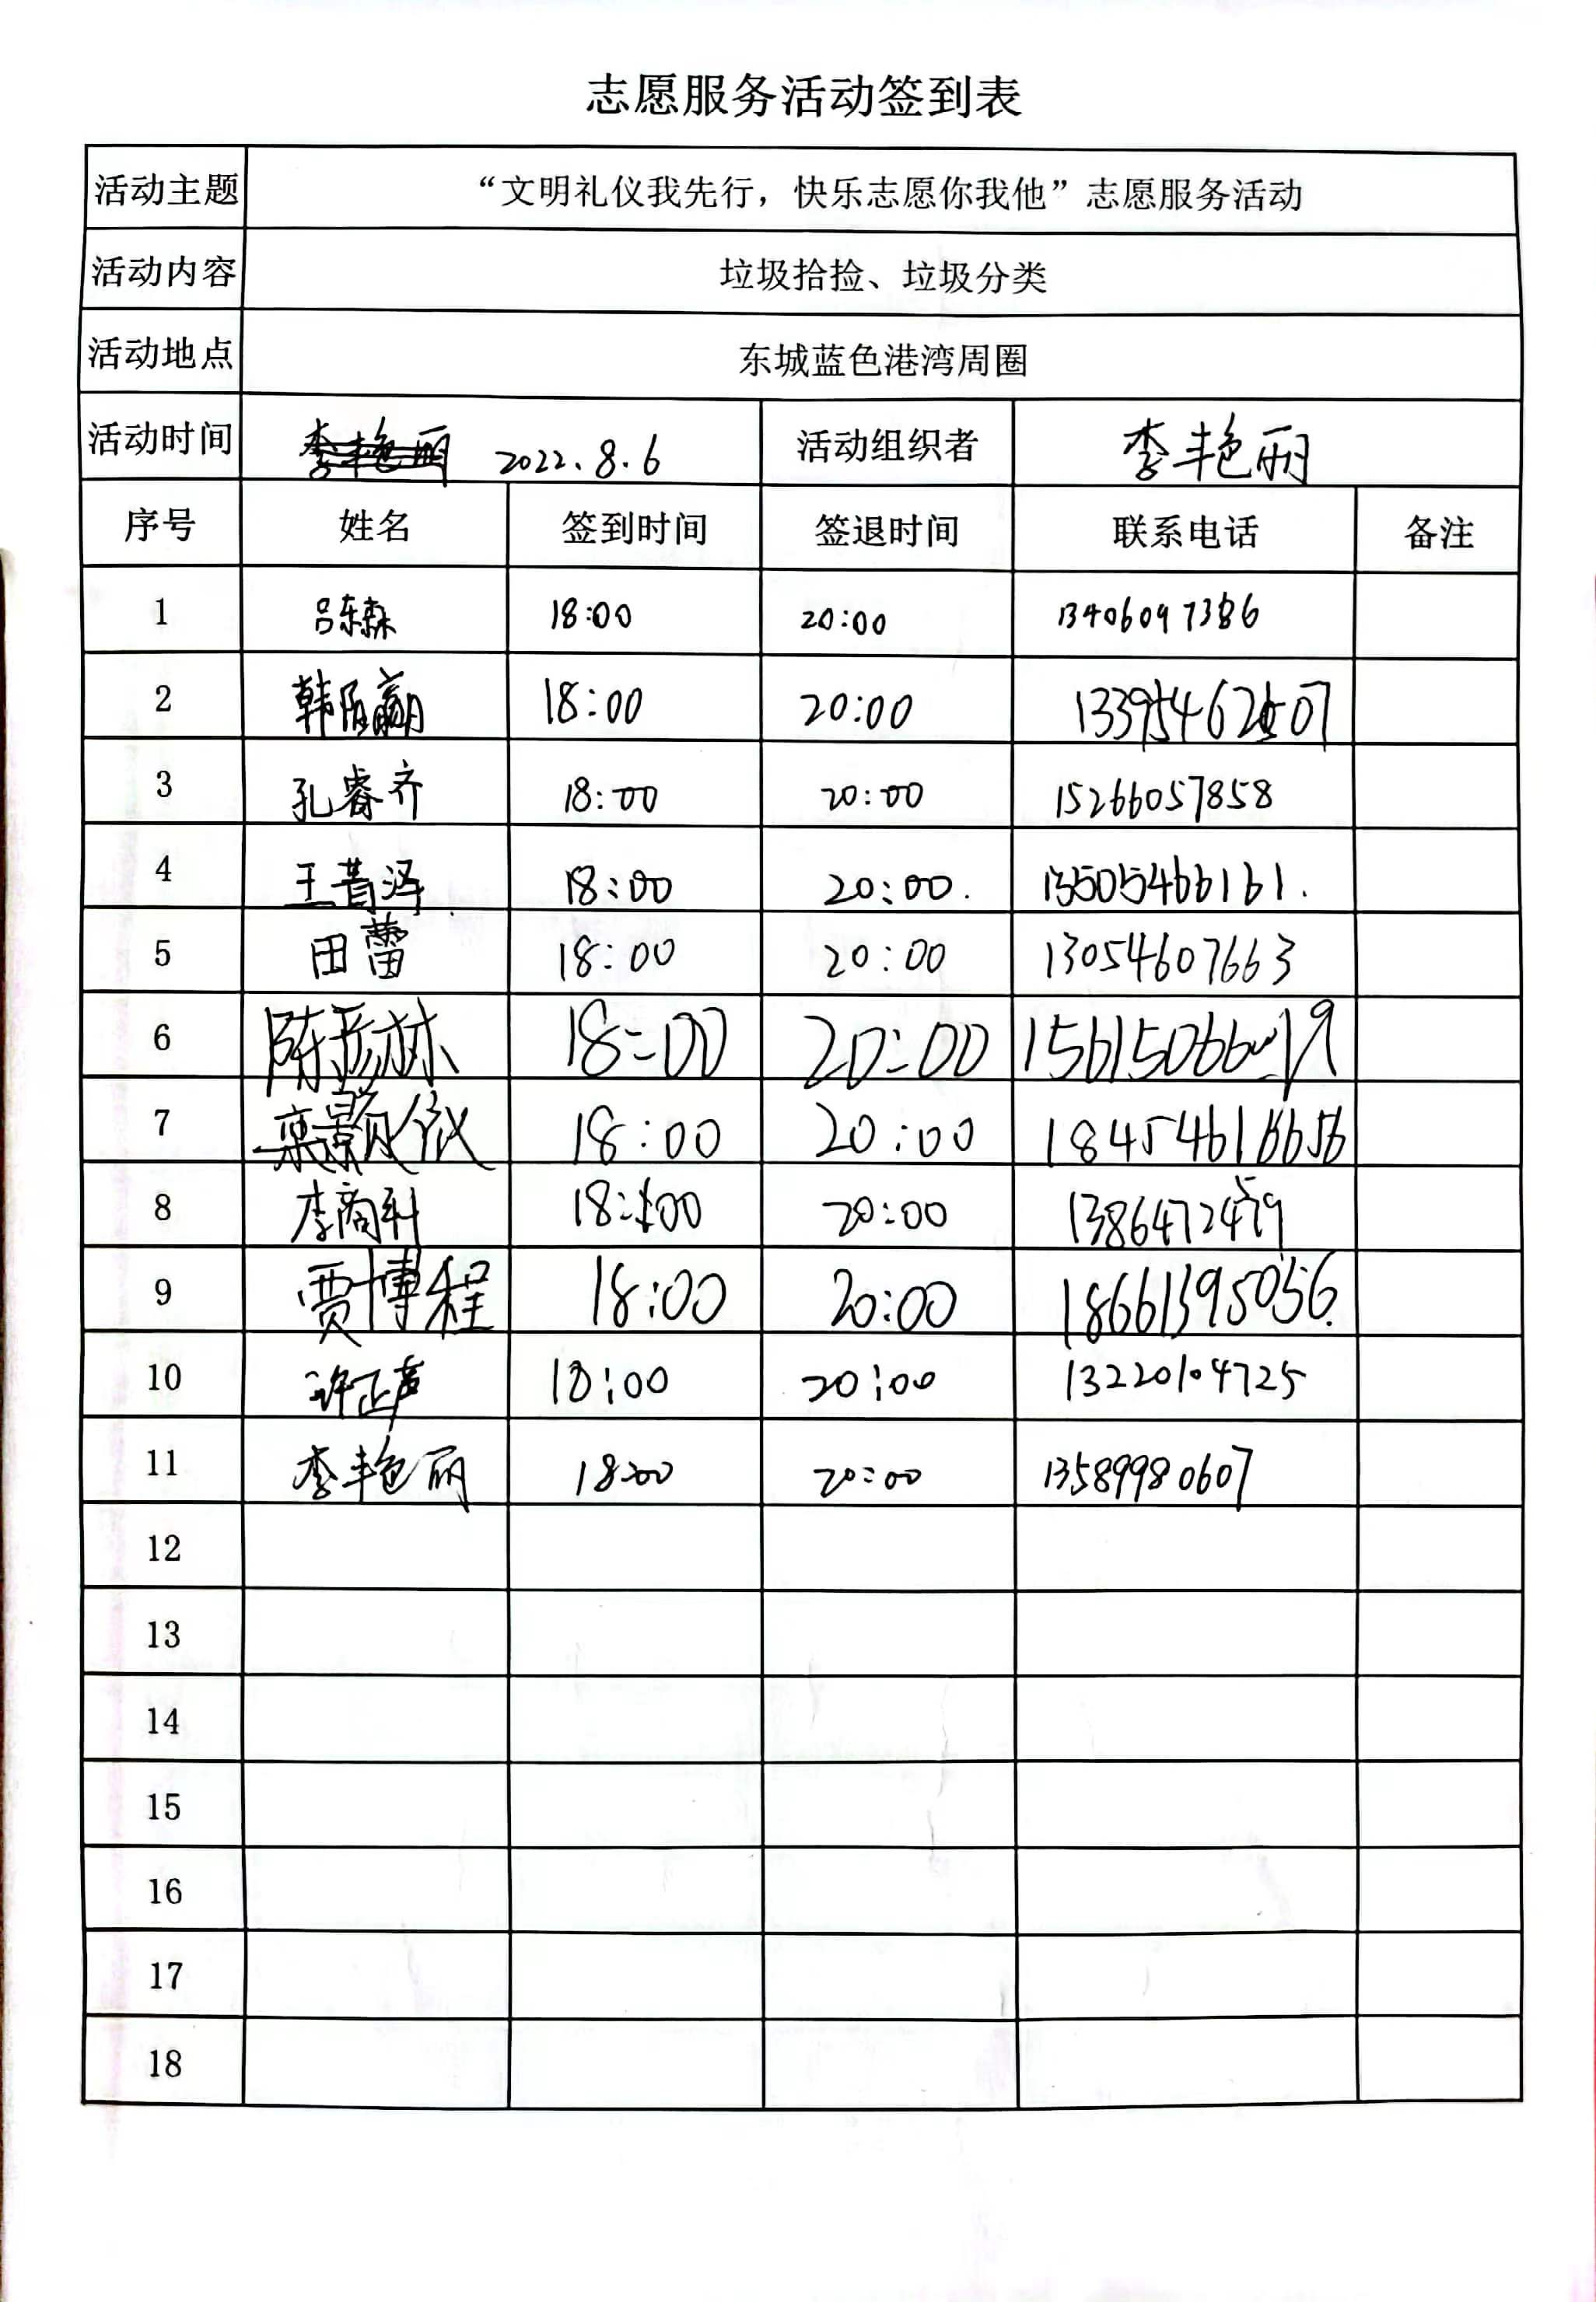 志愿服务活动签到表
活动主题 “文明礼仪我先行，快乐志愿你我他”志愿服务活动
活动内容 垃圾拾捡、垃圾分类
活动地点 东城蓝色港湾周圈
活动时间 李艳丽 2022.8.6 活动组织者 李艳丽
序号 姓名 签到时间 签退时间 联系电话 备注
1 吕东森 18:00 20:00
2 18:00 20:00
3 孔睿齐 18:00 20:00 15266057858
4 18:00 20:00. 13505466161.
5 田蕾 18:00 20:00 13054607663
6 18:00 20:00
7 栾景颢仪 18:00 20:00
8 18:00 20:00
9 贾博程 18:00 20:00 18661395056.
10 许正声 18:00 20:00 13220104725
11 李艳丽 18:00 20:00 13589980607
12
13
14
15
16
17
18